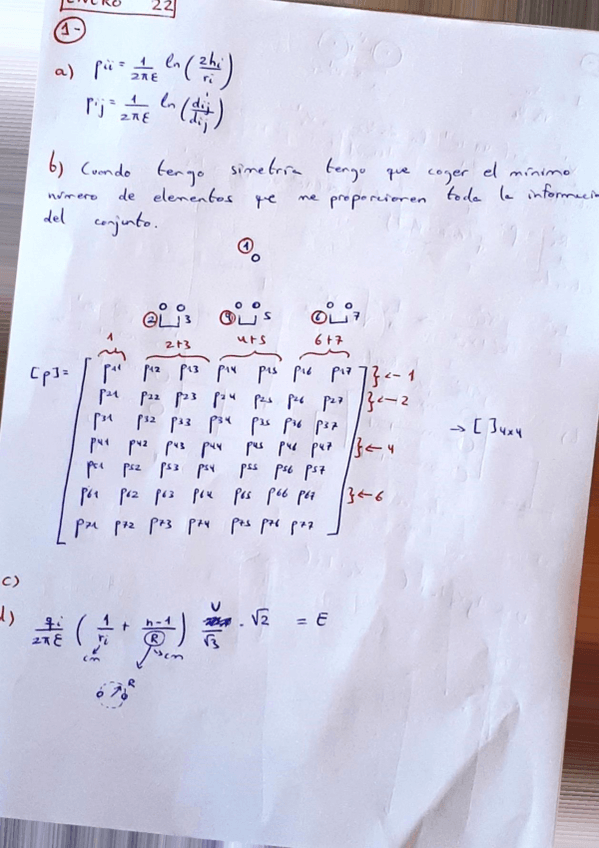 ENERO 22
1-
a) pii = 1/2πε ln (2hi/ri)
pij = 1/2πε ln (d'ij/dij)
b) Cuando tengo simetría tengo que coger el mínimo
número de elementos que me proporcionen toda la informació
del conjunto.
1
2 3 4 5 6 7
1 2+3 4+5 6+7
[p] = [ p11 p12 p13 p14 p15 p16 p17 ] } ← 1
p21 p22 p23 p24 p25 p26 p27 } ← 2
p31 p32 p33 p34 p35 p36 p37 → [ ]4x4
p41 p42 p43 p44 p45 p46 p47 } ← 4
p51 p52 p53 p54 p55 p56 p57
p61 p62 p63 p64 p65 p66 p67 } ← 6
p71 p72 p73 p74 p75 p76 p77
c)
d) qi/2πε (1/ri + n-1/R) U/√3 · √2 = E
cm cm
R